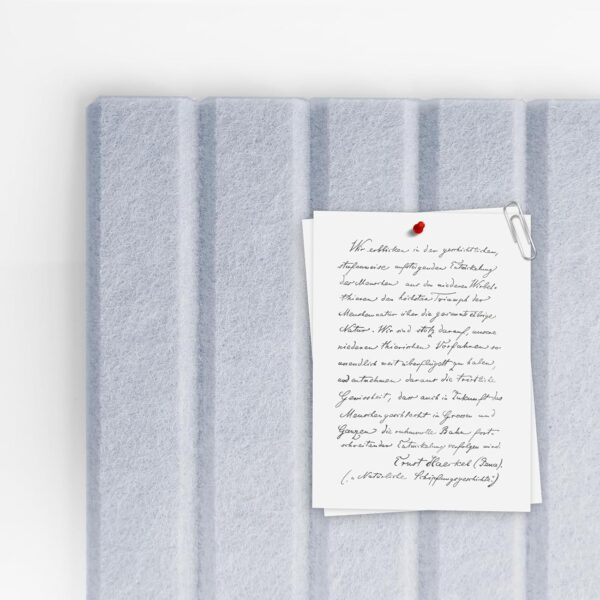 Wir erblicken in der geschichtlichen,
stufenweise aufsteigenden Entwickelung
der Menschen aus den niederen Wirbel-
thieren den höchsten Triumph der
Menschennatur über die gesammte übrige
Natur. Wir sind stolz darauf, unsere
niederen thierischen Vorfahren so
unendlich weit überflügelt zu haben,
und entnehmen daraus die tröstliche
Gewissheit, dass auch in Zukunft das
Menschengeschlecht im Grossen und
Ganzen die ruhmvolle Bahn fort-
schreitender Entwickelung verfolgen wird
Ernst Haeckel (Jena).
(„Natürliche Schöpfungsgeschichte")